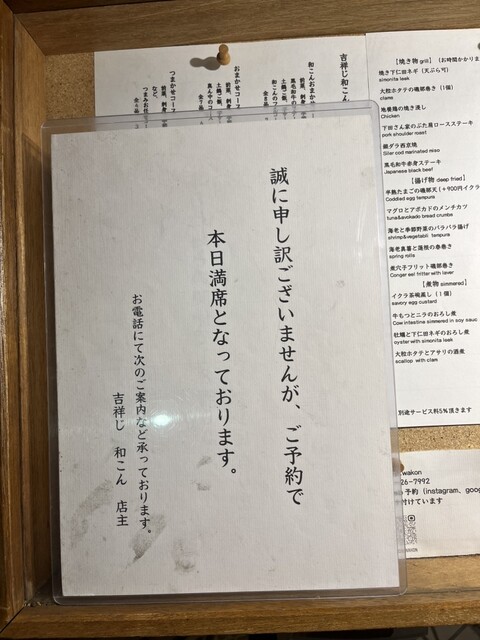 誠に申し訳ございませんが、ご予約で
本日満席となっております。
お電話にて次のご案内など承っております。
吉祥じ 和こん 店主
吉祥じ和こん
和こんおまかせコ
おまかせコース
つまかせコース
【焼き物 grill】(お時間かかりま
焼き下仁田ネギ（天ぷら可）
simonita leak
大粒ホタテの磯部巻き（1個）
clams
地養鶏の焼き浸し
Chicken
下田さん家のぶた肩ロースステーキ
pork shoulder roast
銀ダラ西京焼
Siler cod marinated miso
黒毛和牛赤身ステーキ
Japanese black beef
【揚げ物 deep fried】
半熟たまごの磯部天(+900円イクラ
Coddled egg tempura
マグロとアボカドのメンチカツ
tuna&avokado bread crumbs
海老と季節野菜のパラパラ揚げ
shrimp&vegetabli tempura
海老真薯と蓮根の春巻き
spring rolls
煮穴子フリット磯部巻き
Conger eel fritter with laver
【煮物 simmered】
イクラ茶碗蒸し（1個）
savory egg custard
牛もつとニラのおろし煮
Cow intestine simmered in soy sauc
牡蠣と下仁田ネギのおろし煮
oyster with simonita leak
大粒ホタテとアサリの酒煮
scallop with clam
別途サービス料5%頂きます
wakon
26-7992
予約（instagram、goog
付けています